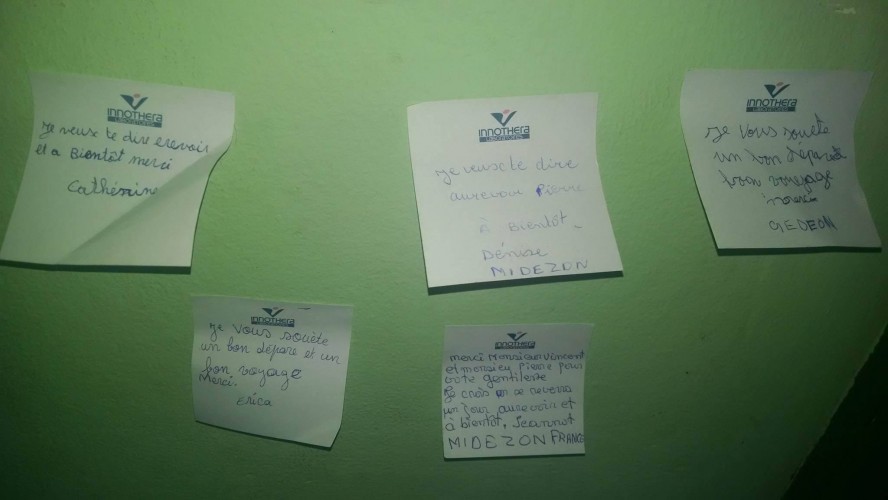 INNOTHERA
LABORATOIRES
Je veux te dire erevoir
et a Bientôt merci
Cathérine
INNOTHERA
LABORATOIRES
Je veux te dire
aurevoir Pierre
À Bientôt
Dénise
MIDEZON
INNOTHERA
LABORATOIRES
Je vous souète
un bon départ
bon voyage
merci
GEDEON
INNOTHERA
LABORATOIRES
Je vous souète
un bon dépare et un
bon voyage
merci.
Erica
INNOTHERA
LABORATOIRES
merci Monsieur Vincent
et monsieu Pierre pour
vote gentilesse
Je crois on se reverra
un jour aurevoir et
à bientôt, Jeannot
MIDEZON FRANC